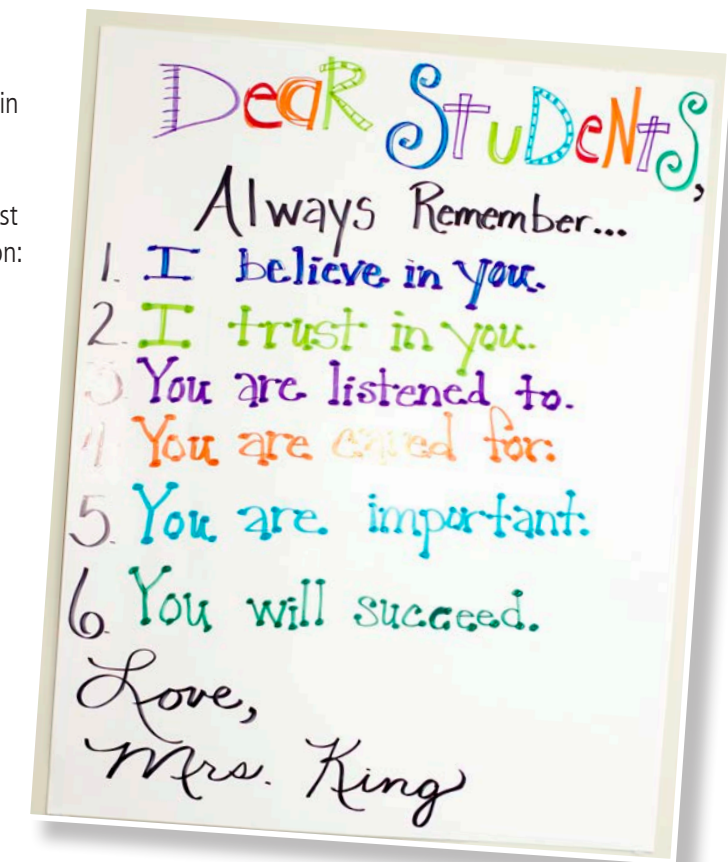 in
st
on:
DeaR StuDeNtS,
Always Remember...
1. I believe in you.
2. I trust in you.
3 You are listened to.
4 You are cared for.
5. You are important.
6. You will succeed.
Love,
Mrs. King